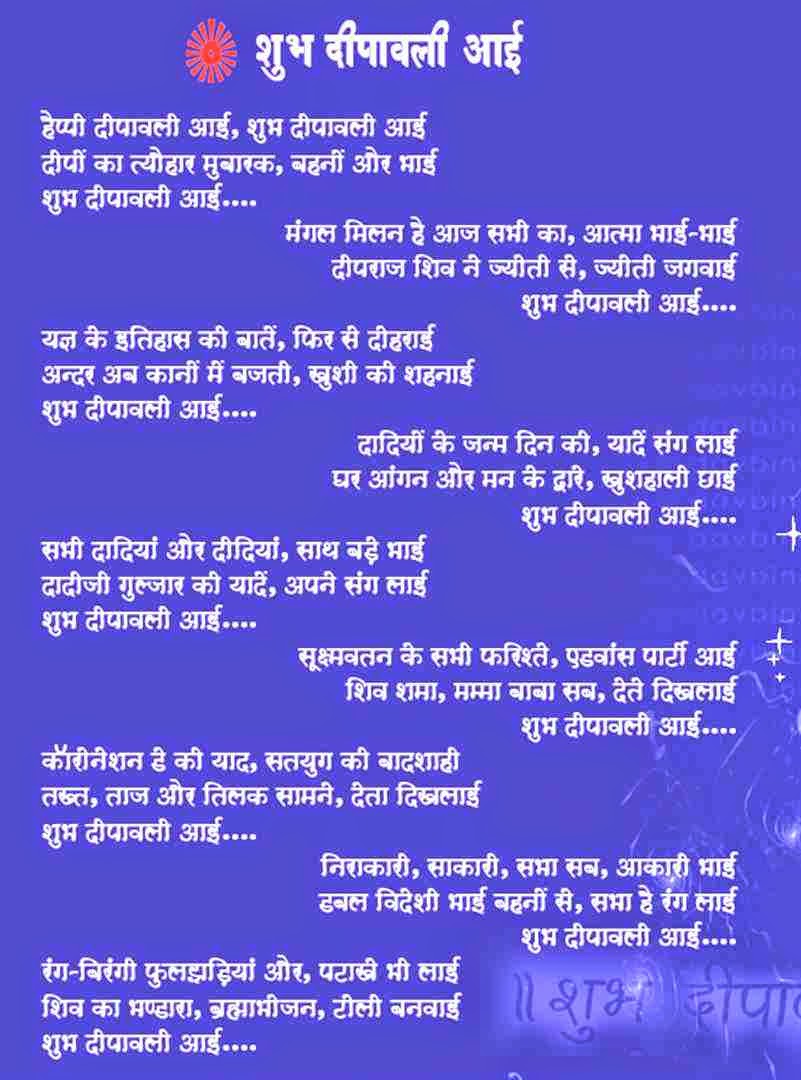 शुभ दीपावली आई
हेप्पी दीपावली आई, शुभ दीपावली आई
दीपों का त्यौहार मुबारक, बहनों और भाई
शुभ दीपावली आई....
मंगल मिलन है आज सभी का, आत्मा भाई-भाई
दीपराज शिव ने ज्योती से, ज्योती जगवाई
शुभ दीपावली आई....
यज्ञ के इतिहास की बातें, फिर से दोहराई
अन्दर अब कानों में बजती, खुशी की शहनाई
शुभ दीपावली आई....
दादियों के जन्म दिन की, यादें संग लाई
घर आंगन और मन के द्वारे, खुशहाली छाई
शुभ दीपावली आई....
सभी दादियां और दीदियां, साथ बड़े भाई
दादीजी गुल्जार की यादें, अपने संग लाई
शुभ दीपावली आई....
सूक्ष्मवतन के सभी फरिश्ते, एडवांस पार्टी आई
शिव शमा, मम्मा बाबा सब, देते दिखलाई
शुभ दीपावली आई....
कॉरोनेशन डे की याद, सतयुग की बादशाही
तख्त, ताज और तिलक सामने, देता दिखलाई
शुभ दीपावली आई....
निराकारी, साकारी, सभा सब, आकारी भाई
डबल विदेशी भाई बहनों से, सभा है रंग लाई
शुभ दीपावली आई....
रंग-बिरंगी फुलझड़ियां और, पटाखे भी लाई
शिव का भण्डारा, ब्रह्माभोजन, टोली बनवाई
शुभ दीपावली आई....
॥ शुभ दीपाव